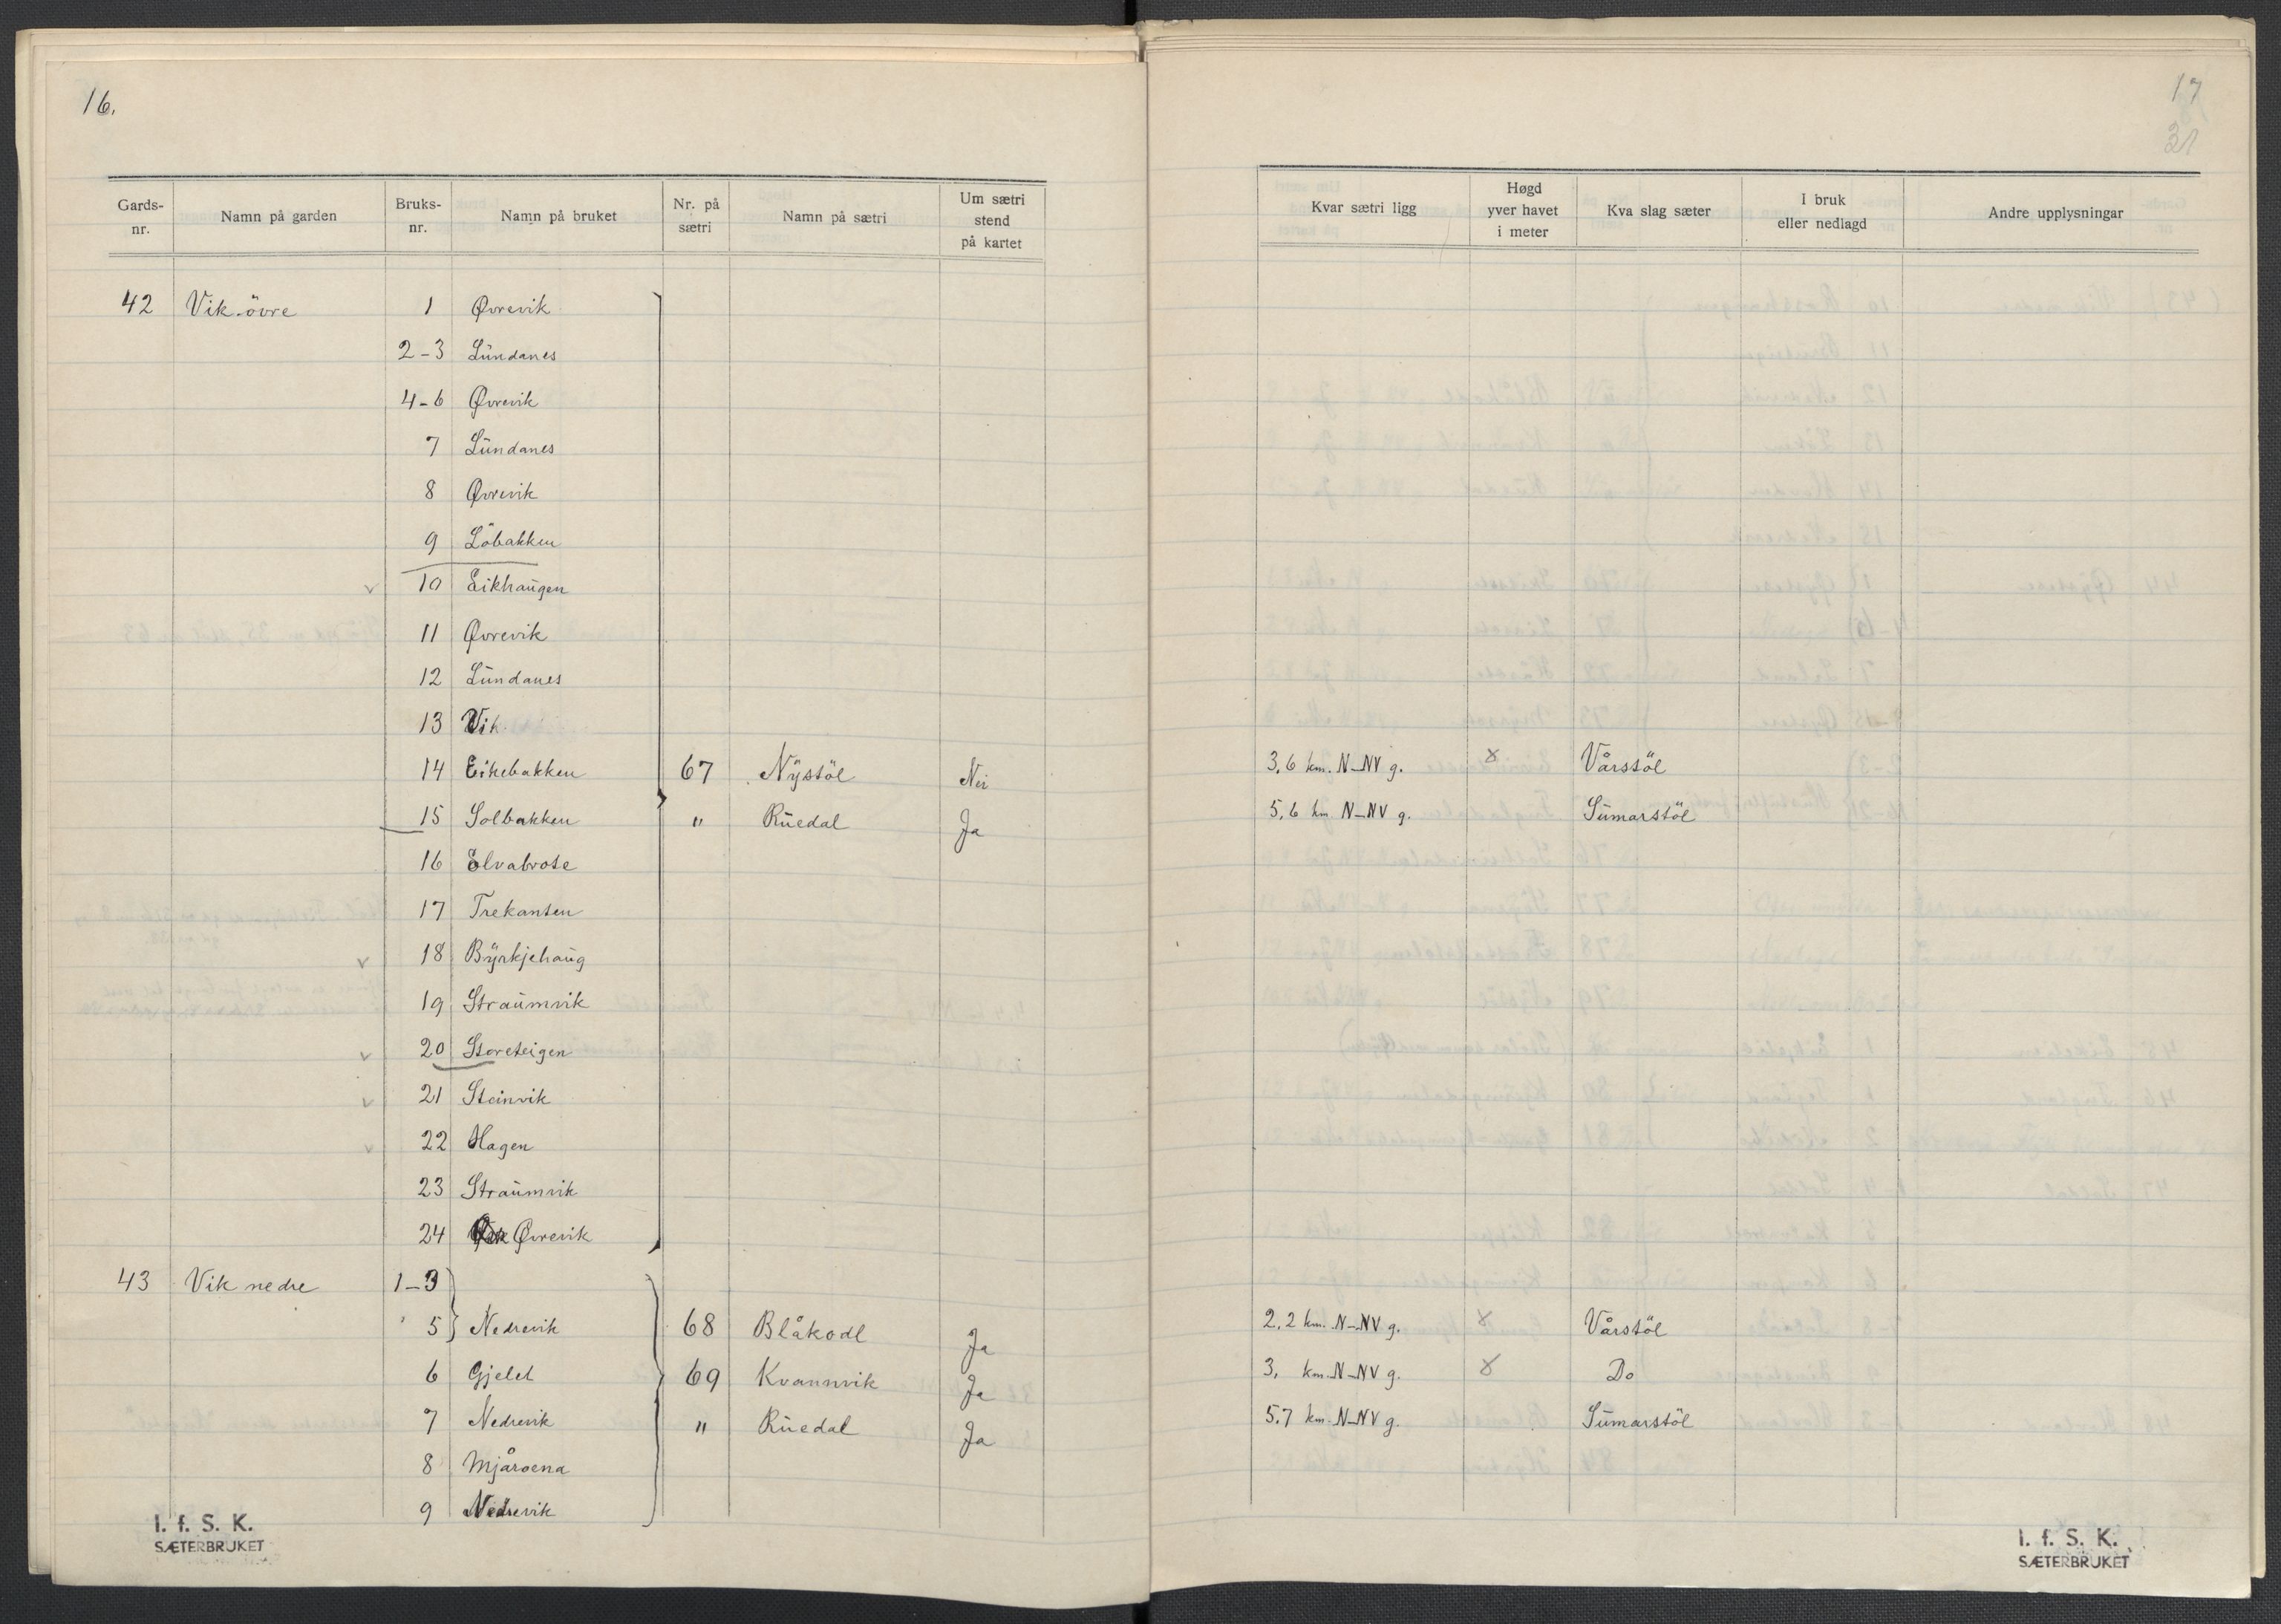 16.
Gards-nr. Namn på garden Bruks-nr. Namn på bruket Nr. på sætri Namn på sætri Um sætri stend på kartet
42 Vik øvre 1 Øvrevik
2-3 Lündanes
4-6 Øvrevik
7 Lündanes
8 Øvrevik
9 Löbakken
10 Eikhaügen
11 Øvrevik
12 Lündanes
13 Vik
14 Eikebakken 67 Nÿstöl Nei
15 Solbakken " Rüedal Ja
16 Elvabrote
17 Trekanten
18 Bÿrkjehaüg
19 Straümvik
20 Storeteigen
21 Steinvik
22 Hagen
23 Straümvik
24 Øvrevik
43 Vik nedre 1-3
5 Nedrevik 68 Blåkodl Ja
6 Gjelet 69 Kvannvik Ja
7 Nedrevik " Rüedal Ja
8 Mjåroena
9 Nedrevik
I. f. S. K.
SÆTERBRUKET
17
31
Kvar sætri ligg Høgd yver havet i meter Kva slag sæter I bruk eller nedlagd Andre upplysningar
3,6 km. N-NV g. x Vårstöl
5,6 km N-NV g. Sümarstöl
2,2 km. N-NV g. x Vårstöl
3, km. N-NV g. x Do
5.7 km. N-NV g. Sümarstöl
I. f. S. K.
SÆTERBRUKET